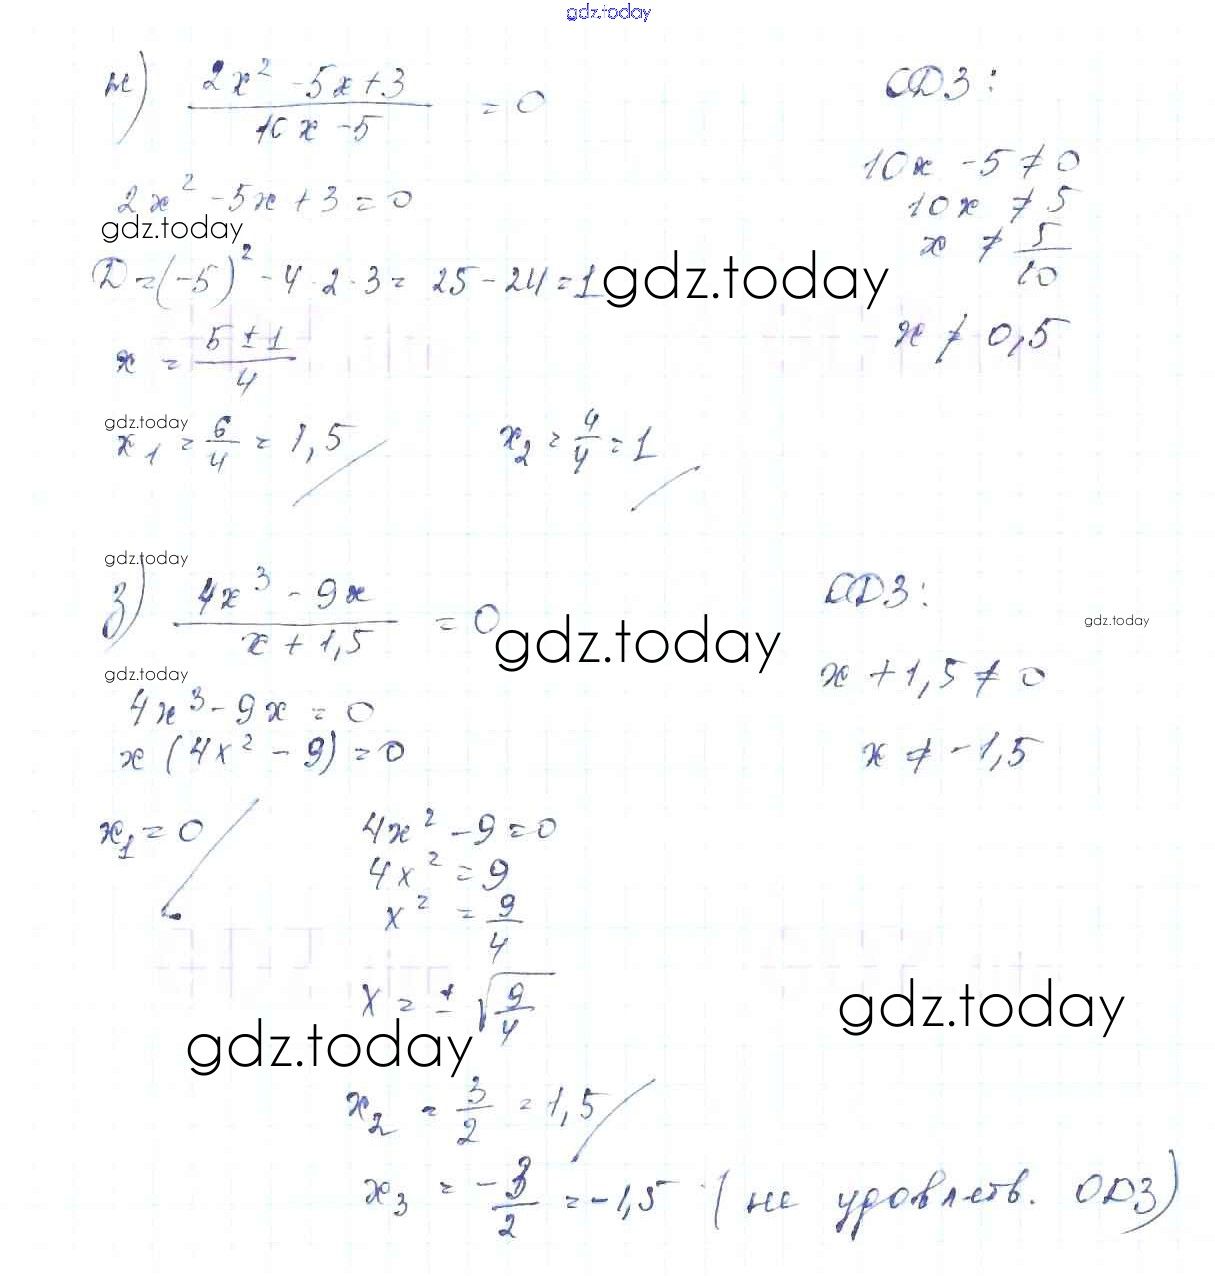 gdz.today
ж) (2x² - 5x + 3)/(10x - 5) = 0
ОДЗ:
10x - 5 ≠ 0
2x² - 5x + 3 = 0
10x ≠ 5
gdz.today
x ≠ 5/10
D = (-5)² - 4 · 2 · 3 = 25 - 24 = 1
gdz.today
x ≠ 0,5
x = (5 ± 1)/4
gdz.today
x₁ = 6/4 = 1,5
x₂ = 4/4 = 1
gdz.today
з) (4x³ - 9x)/(x + 1,5) = 0
ОДЗ:
gdz.today
gdz.today
x + 1,5 ≠ 0
gdz.today
4x³ - 9x = 0
x (4x² - 9) = 0
x ≠ -1,5
x₁ = 0
4x² - 9 = 0
4x² = 9
x² = 9/4
x = ± √(9/4)
gdz.today
gdz.today
x₂ = 3/2 = 1,5
x₃ = -3/2 = -1,5 (не удовлетв. ОДЗ)